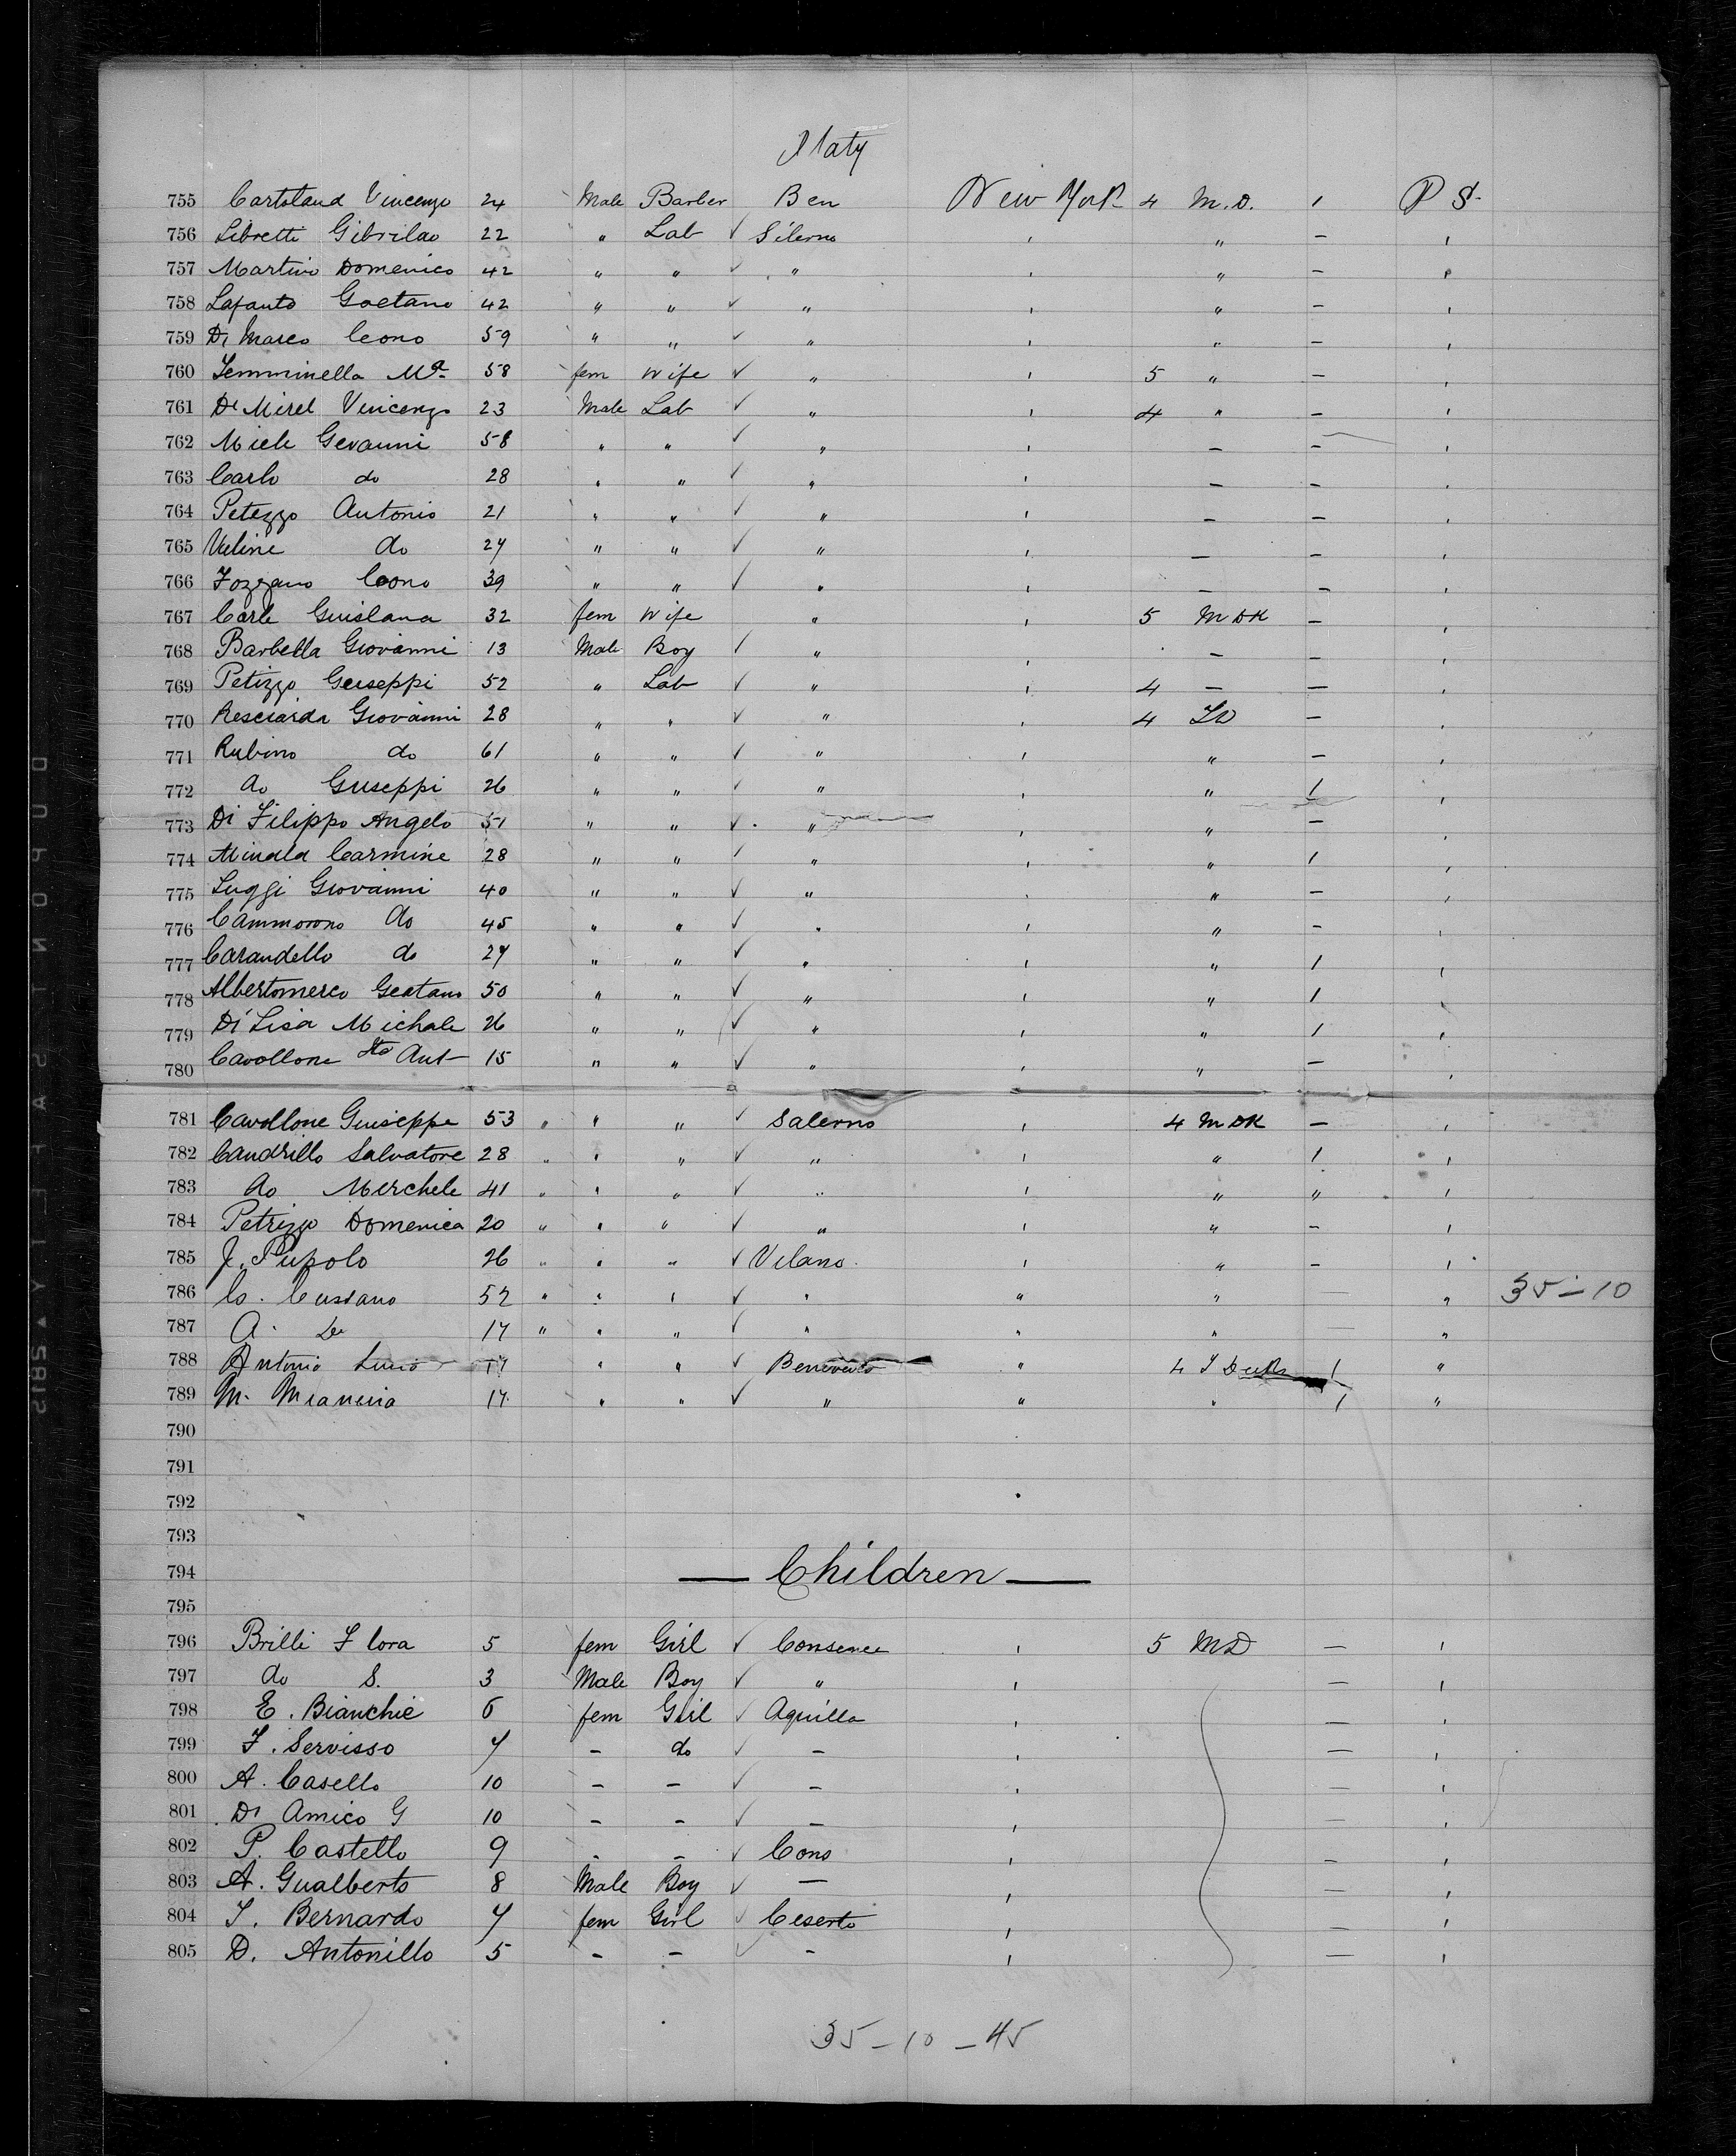 Italy
755 Cartoland Vincenzo 24 Male Barber Ben New York 4 M.D. 1 P S.
756 Libretti Gibrilao 22 " Lab ✓ Silerno ' " – '
757 Martino Domenico 42 " " ✓ " ' " – '
758 Lafauto Gaetano 42 " " ✓ " ' " – '
759 Di Marco Cono 59 " " ✓ " ' " – '
760 Femminella Ma 58 fem Wife ✓ " ' 5 " – '
761 De Mirel Vincenzo 23 Male Lab ✓ " ' 4 " – '
762 Miele Gevanni 58 " " ✓ " ' – – '
763 Carlo do 28 " " ✓ " ' – – '
764 Petezzo Antonio 21 " " ✓ " ' – – '
765 do 27 " " ✓ " ' – – '
766 Fozzano Cono 39 " " ✓ " ' – – '
767 Carle Guislana 32 fem Wife " ' 5 M DK – '
768 Barbella Giovanni 13 Male Boy ✓ " ' – – '
769 Petizzo Geiseppi 52 " Lab ✓ " ' 4 – – '
770 Resciarda Giovanni 28 " " ✓ " ' 4 – '
771 Rubino do 61 " " ✓ " ' " – '
772 do Guseppi 26 " " ✓ " ' " 1 '
773 Di Filippo Angelo 51 " " ✓ " ' " – '
774 Minala Carmine 28 " " ✓ " ' " 1 '
775 Luggi Giovanni 40 " " ✓ " ' " – '
776 Cammorono do 45 " " ✓ " ' " – '
777 Carandello do 27 " " ✓ " ' " 1 '
778 Albertomerco Geatano 50 " " ✓ " ' " 1 '
779 Di Lisa Michale 26 " " ✓ " ' " 1 '
780 Cavollone Ant 15 " " ✓ " ' " – '
781 Cavollone Guiseppe 53 " " " ✓ Salerno ' 4 M DK – '
782 Candrillo Salvatore 28 " " " ✓ " ' " 1 '
783 do Merchele 41 " " " ✓ " ' " " '
784 Petrizzo Domenica 20 " " " ✓ " ' " – '
785 J. Pupolo 26 " " " ✓ Vilano ' " – '
786 Co. Cussano 52 " " " ✓ " " " — " 35–10
787 A. De 17 " " " ✓ " " " — "
788 Antonio Lucio 17 " " ✓ Benevento " 4 1 "
789 M. Mianeria 17 " " ✓ " " " 1 "
790
791
792
793
794 — Children —
795
796 Brilli Flora 5 fem Girl ✓ Consence ' 5 MD — '
797 do S. 3 Male Boy ✓ " ' — '
798 E. Bianchie 6 fem Girl ✓ Aquilla ' — '
799 F. Servisso 7 – do ✓ – ' — '
800 A. Casello 10 – – ✓ – ' — '
801 Di Amico G 10 – – ✓ – ' — '
802 P. Castello 9 – – ✓ Cono ' — '
803 A. Gualberto 8 Male Boy ✓ — ' — '
804 F. Bernardo 7 fem Girl ✓ Ceserto ' — '
805 D. Antonillo 5 – – ✓ – ' — '
35–10–45